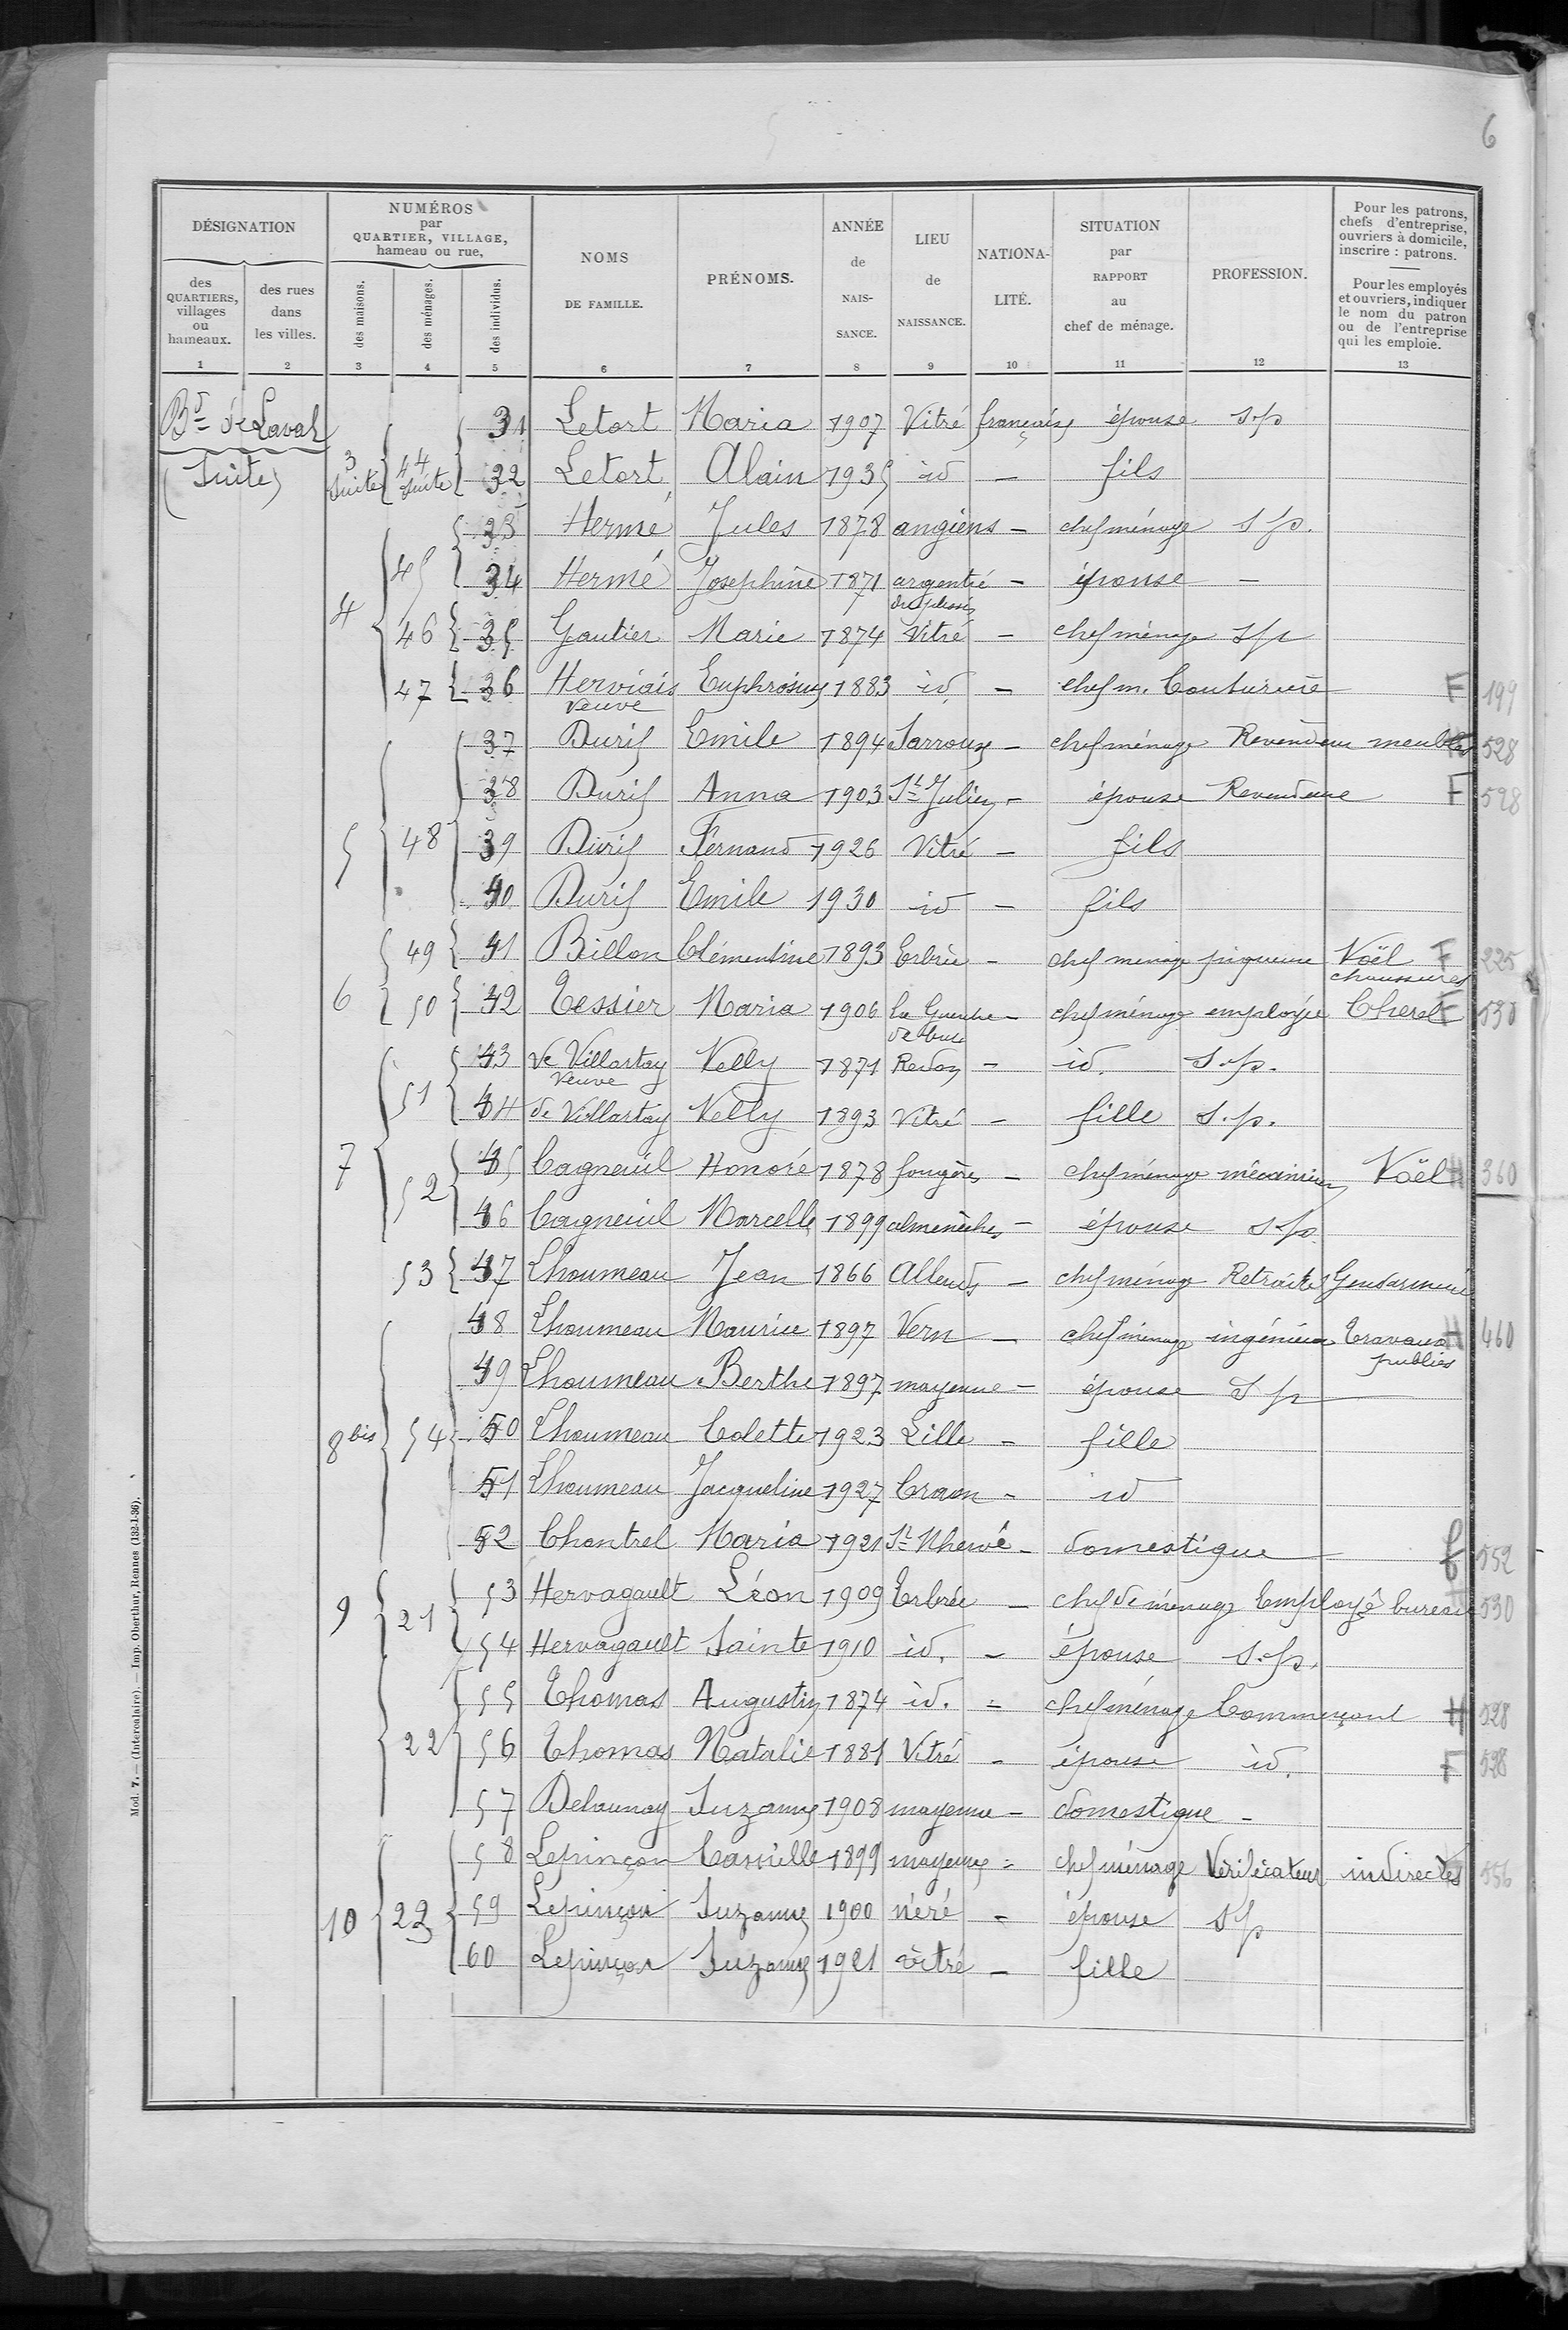 6
DÉSIGNATION
NUMÉROS par QUARTIER, VILLAGE, hameau ou rue,
NOMS DE FAMILLE.
PRÉNOMS.
ANNÉE de NAIS-SANCE.
LIEU de NAISSANCE.
NATIONA-LITÉ.
SITUATION par RAPPORT au chef de ménage.
PROFESSION.
Pour les patrons, chefs d'entreprise, ouvriers à domicile, inscrire : patrons.
Pour les employés et ouvriers, indiquer le nom du patron ou de l'entreprise qui les emploie.
des QUARTIERS, villages ou hameaux.
des rues dans les villes.
des maisons.
des ménages.
des individus.
1 2 3 4 5 6 7 8 9 10 11 12 13
Bd de Laval 31 Letort Maria 1907 Vitré française épouse s.p
(Suite) 3 suite 44 suite 32 Letort Alain 1935 id - fils
33 Hermé Jules 1878 angiens - chef ménage s.p.
4 45 34 Hermé Josephine 1871 argentré du plessis - épouse -
46 35 Gautier Marie 1874 Vitré - chef ménage s.p
47 36 Herviais veuve 1883 id - chef m. Couturière F 199
37 Durif Emile 1894 Sarroux - chef ménage Revendeur meubles 528
38 Durif Anna 1903 St Julien - épouse Revendeuse F 528
5 48 39 Durif Fernand 1926 Vitré - fils
40 Durif Emile 1930 id - fils
49 41 Billon Clémentine 1893 Erbrée - chef ménage piqueuse Noël chaussures F 225
6 50 42 Tessier Maria 1906 La Guerche - chef ménage employée Cherel F 530
43 de Villartay veuve Nelly 1871 Redon - id. s.p.
51 44 de Villartay Nelly 1893 Vitré - fille s.p.
7 45 Cagneuil Honoré 1878 fougères - chef ménage mécanicien Noël H 360
52 46 Cagneuil Marcelle 1899 almenèches - épouse s.p.
53 47 Lhoumeau Jean 1866 - chef ménage Retraité Gendarmerie
48 Lhoumeau Maurice 1897 Vern - chef ménage ingénieur Travaux publics H 460
49 Lhoumeau Berthe 1897 mayenne - épouse S p
8 bis 54 50 Lhoumeau Colette 1923 Lille - fille
51 Lhoumeau Jacqueline 1927 Craon - id
52 Chantrel Maria 1921 St Mhervé - domestique f 552
9 21 53 Hervagault Léon 1909 Erbrée - chef de ménage Employé bureau 530
54 Hervagault Sainte 1910 id. - épouse s.p.
55 Thomas Augustin 1874 id. - chef ménage Commerçant H 528
22 56 Thomas Natalie 1881 Vitré - épouse id. F 528
57 Delaunay Suzanne 1908 mayenne - domestique -
58 Lepinçon Camille 1899 mayenne - chef ménage Vérificateur indirectes 556
10 23 59 Lepinçon Suzanne 1900 néré - épouse s.p
60 Lepinçon Suzanne 1921 vitré - fille
Mod. 7. — (Intercalaire). — Imp. Oberthur, Rennes (132-1-36).